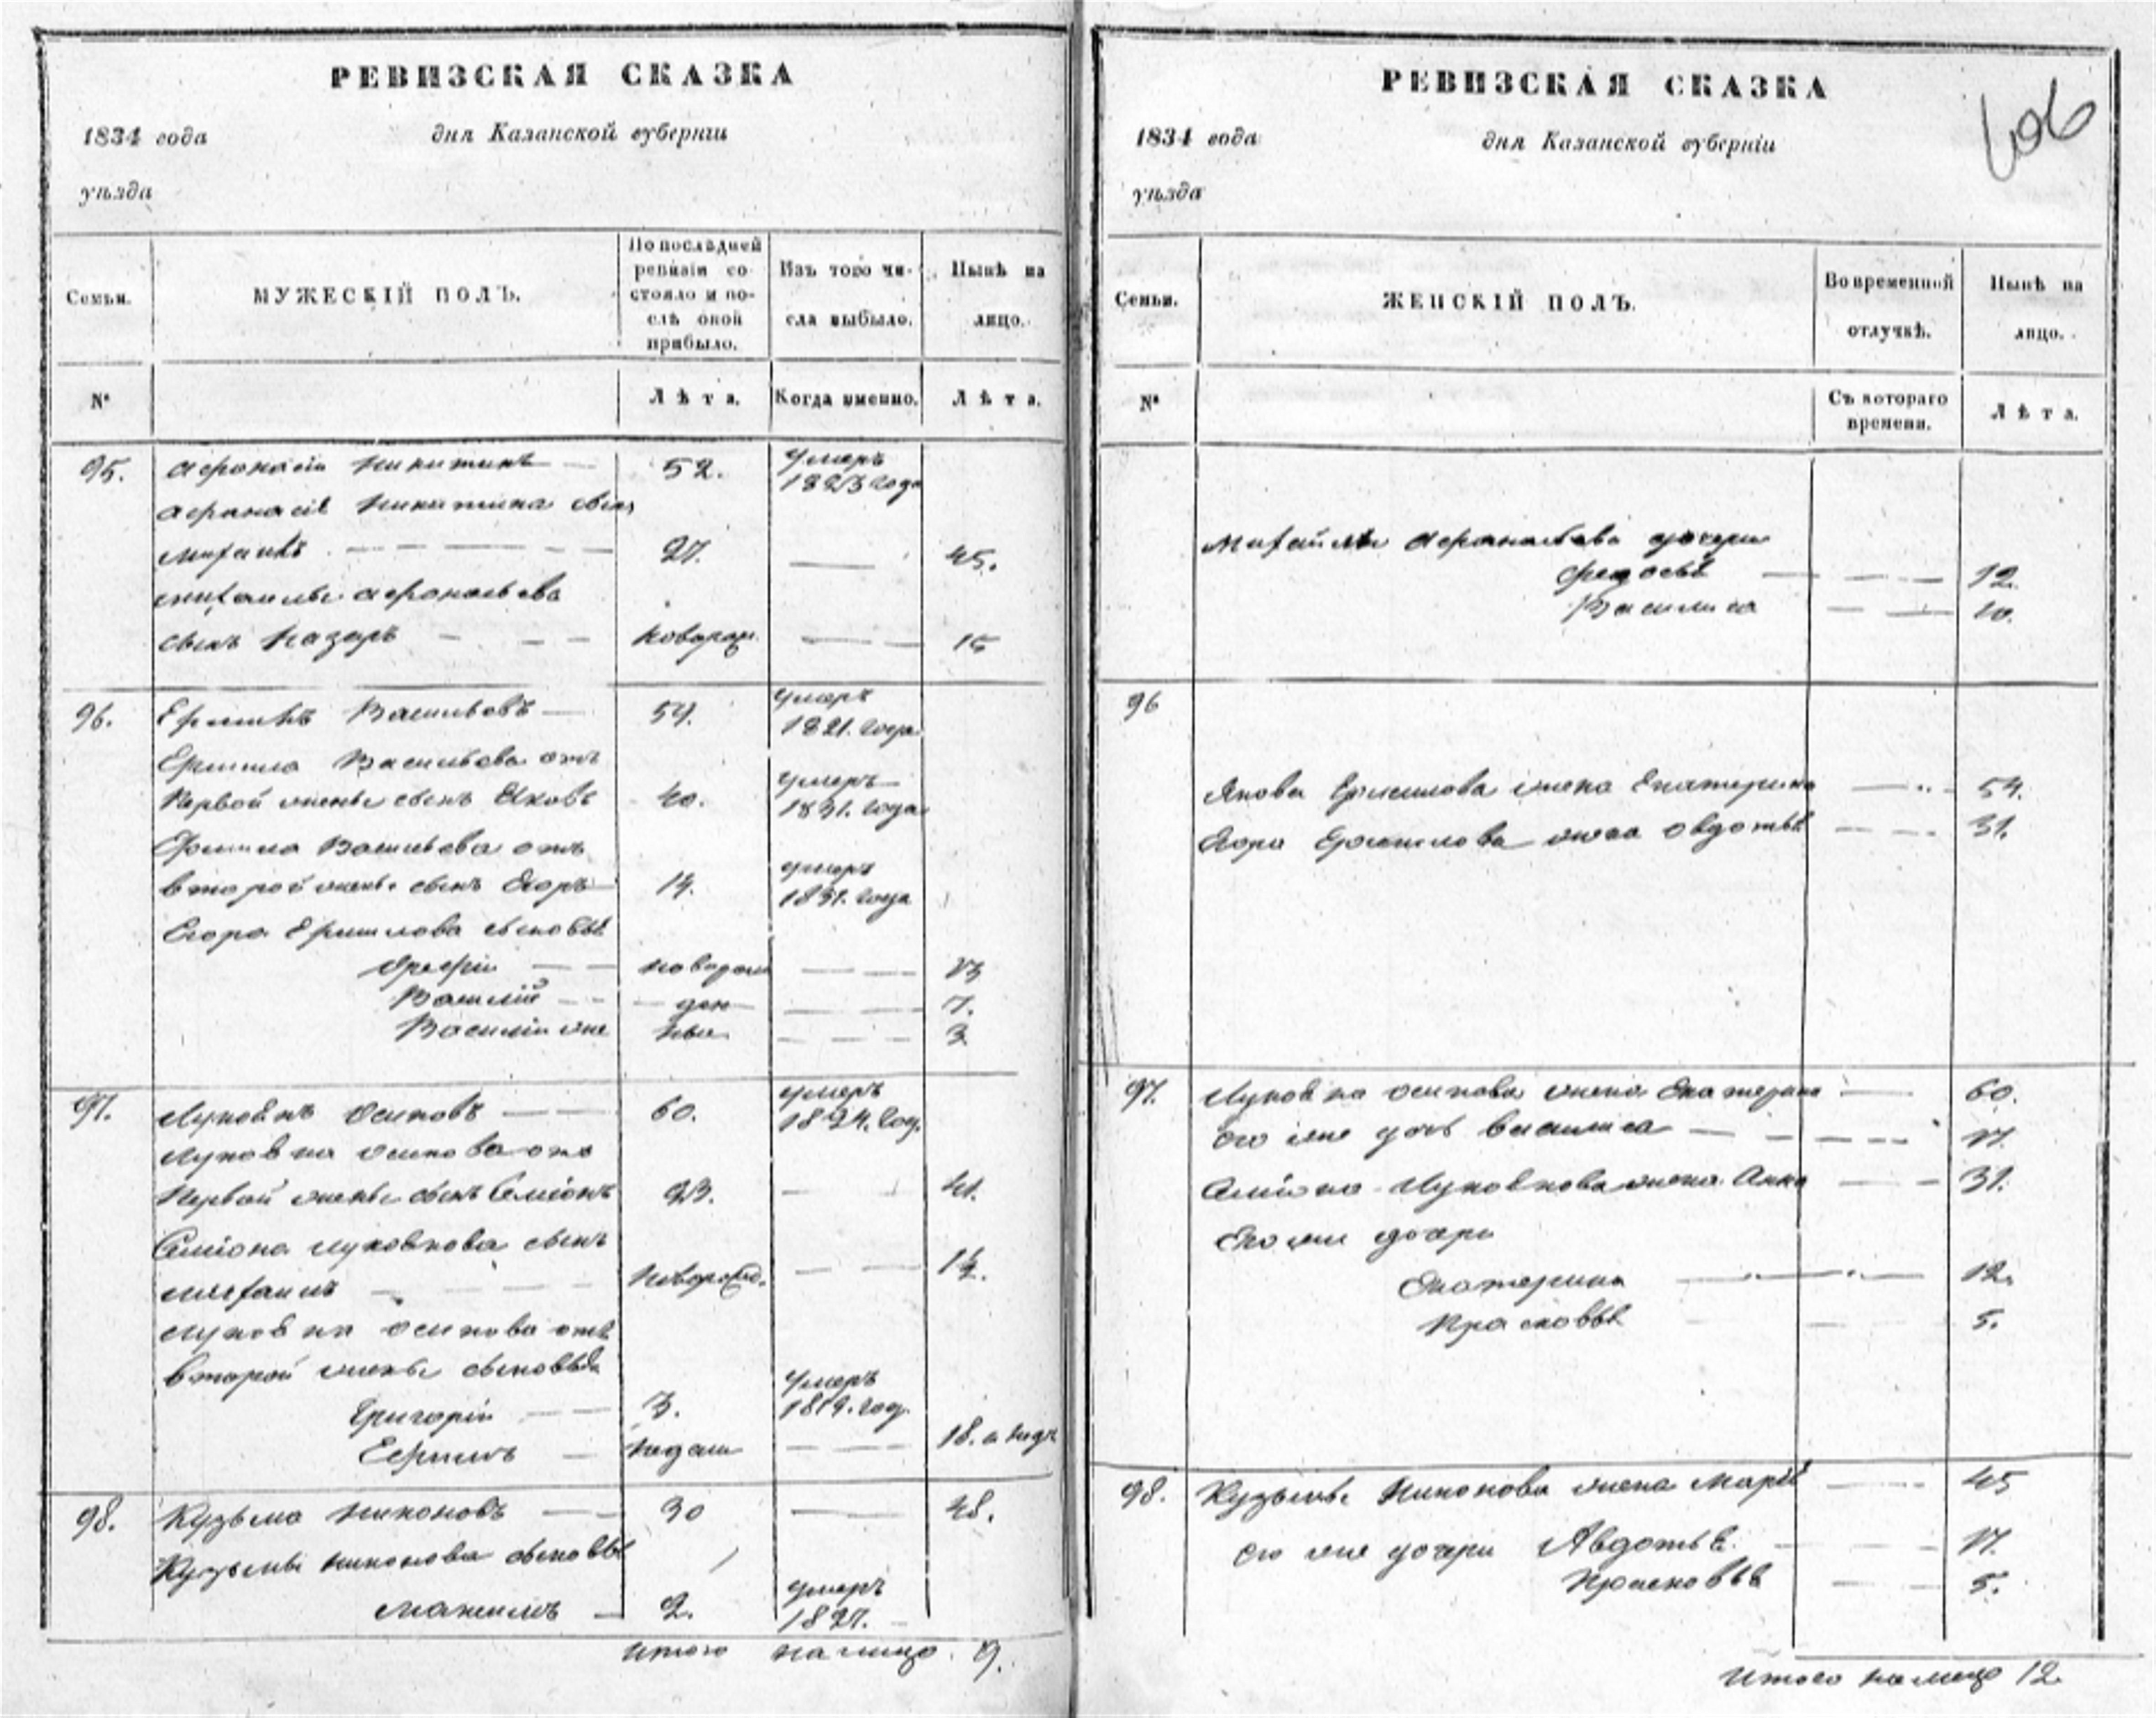 РЕВИЗСКАЯ СКАЗКА
1834 года
дня Казанской губернiи
уѣзда
Семьи.
МУЖЕСКIЙ ПОЛЪ.
По последней ревизiи состояло и послѣ оной прибыло.
Изъ того числа выбыло.
Нынѣ на лицо.
№
Лѣта.
Когда именно.
Лѣта.
95. Афонасiи Никитинъ 52. умеръ 1823 года
Афонасiя Никитина сынъ
Михаилъ 27. 45.
Михаилы Афонасьева
сынъ Назаръ новорож. 15
96. Ермилъ Васильевъ 54. умеръ 1821. года
Ермила Васильева отъ
первой жены сынъ Яковъ 40. умеръ 1831. года
Ермила Васильева отъ
второй жены сынъ Егоръ 14. умеръ 1831. года
Егора Ермилова сыновья
новорож 13
Василiй ден 7.
Василiи же ные 3
97. Осиповъ 60. умеръ 1824. год.
Осипова отъ
первой жены сынъ Семiонъ 23. 41.
Семiона сынъ
новорожд. 14.
Осипова отъ
второй жены сыновья
Григорiи 3. умеръ 1819. год.
Ефимъ недел 18. а нед
98. Кузьма Никоновъ 30 48.
Кузьмы Никонова сыновья
Максимъ 2. умеръ 1827.
Итого на лицо. 9.
РЕВИЗСКАЯ СКАЗКА
606
1834 года
дня Казанской губернiи
уѣзда
Семьи.
ЖЕНСКIЙ ПОЛЪ.
Во временной отлучкѣ.
Нынѣ на лицо.
№
Съ котораго времени.
Лѣта.
Михайлы Афонасьева дочери
Федосья 12.
Василиса 10.
96
Якова Ермилова жена Екатерина 54.
Егора Ермилова жена Овдотья 31.
97. Осипова жена Екатерина 60.
его же дочь Василиса 17.
Семiона жена Анна 31.
Его же дочери
Екатерина 12.
Прасковья 5.
98. Кузьмы Никонова жена Марья 45
его же дочери Авдотья 17.
Прасковья 5.
Итого на лицо 12.